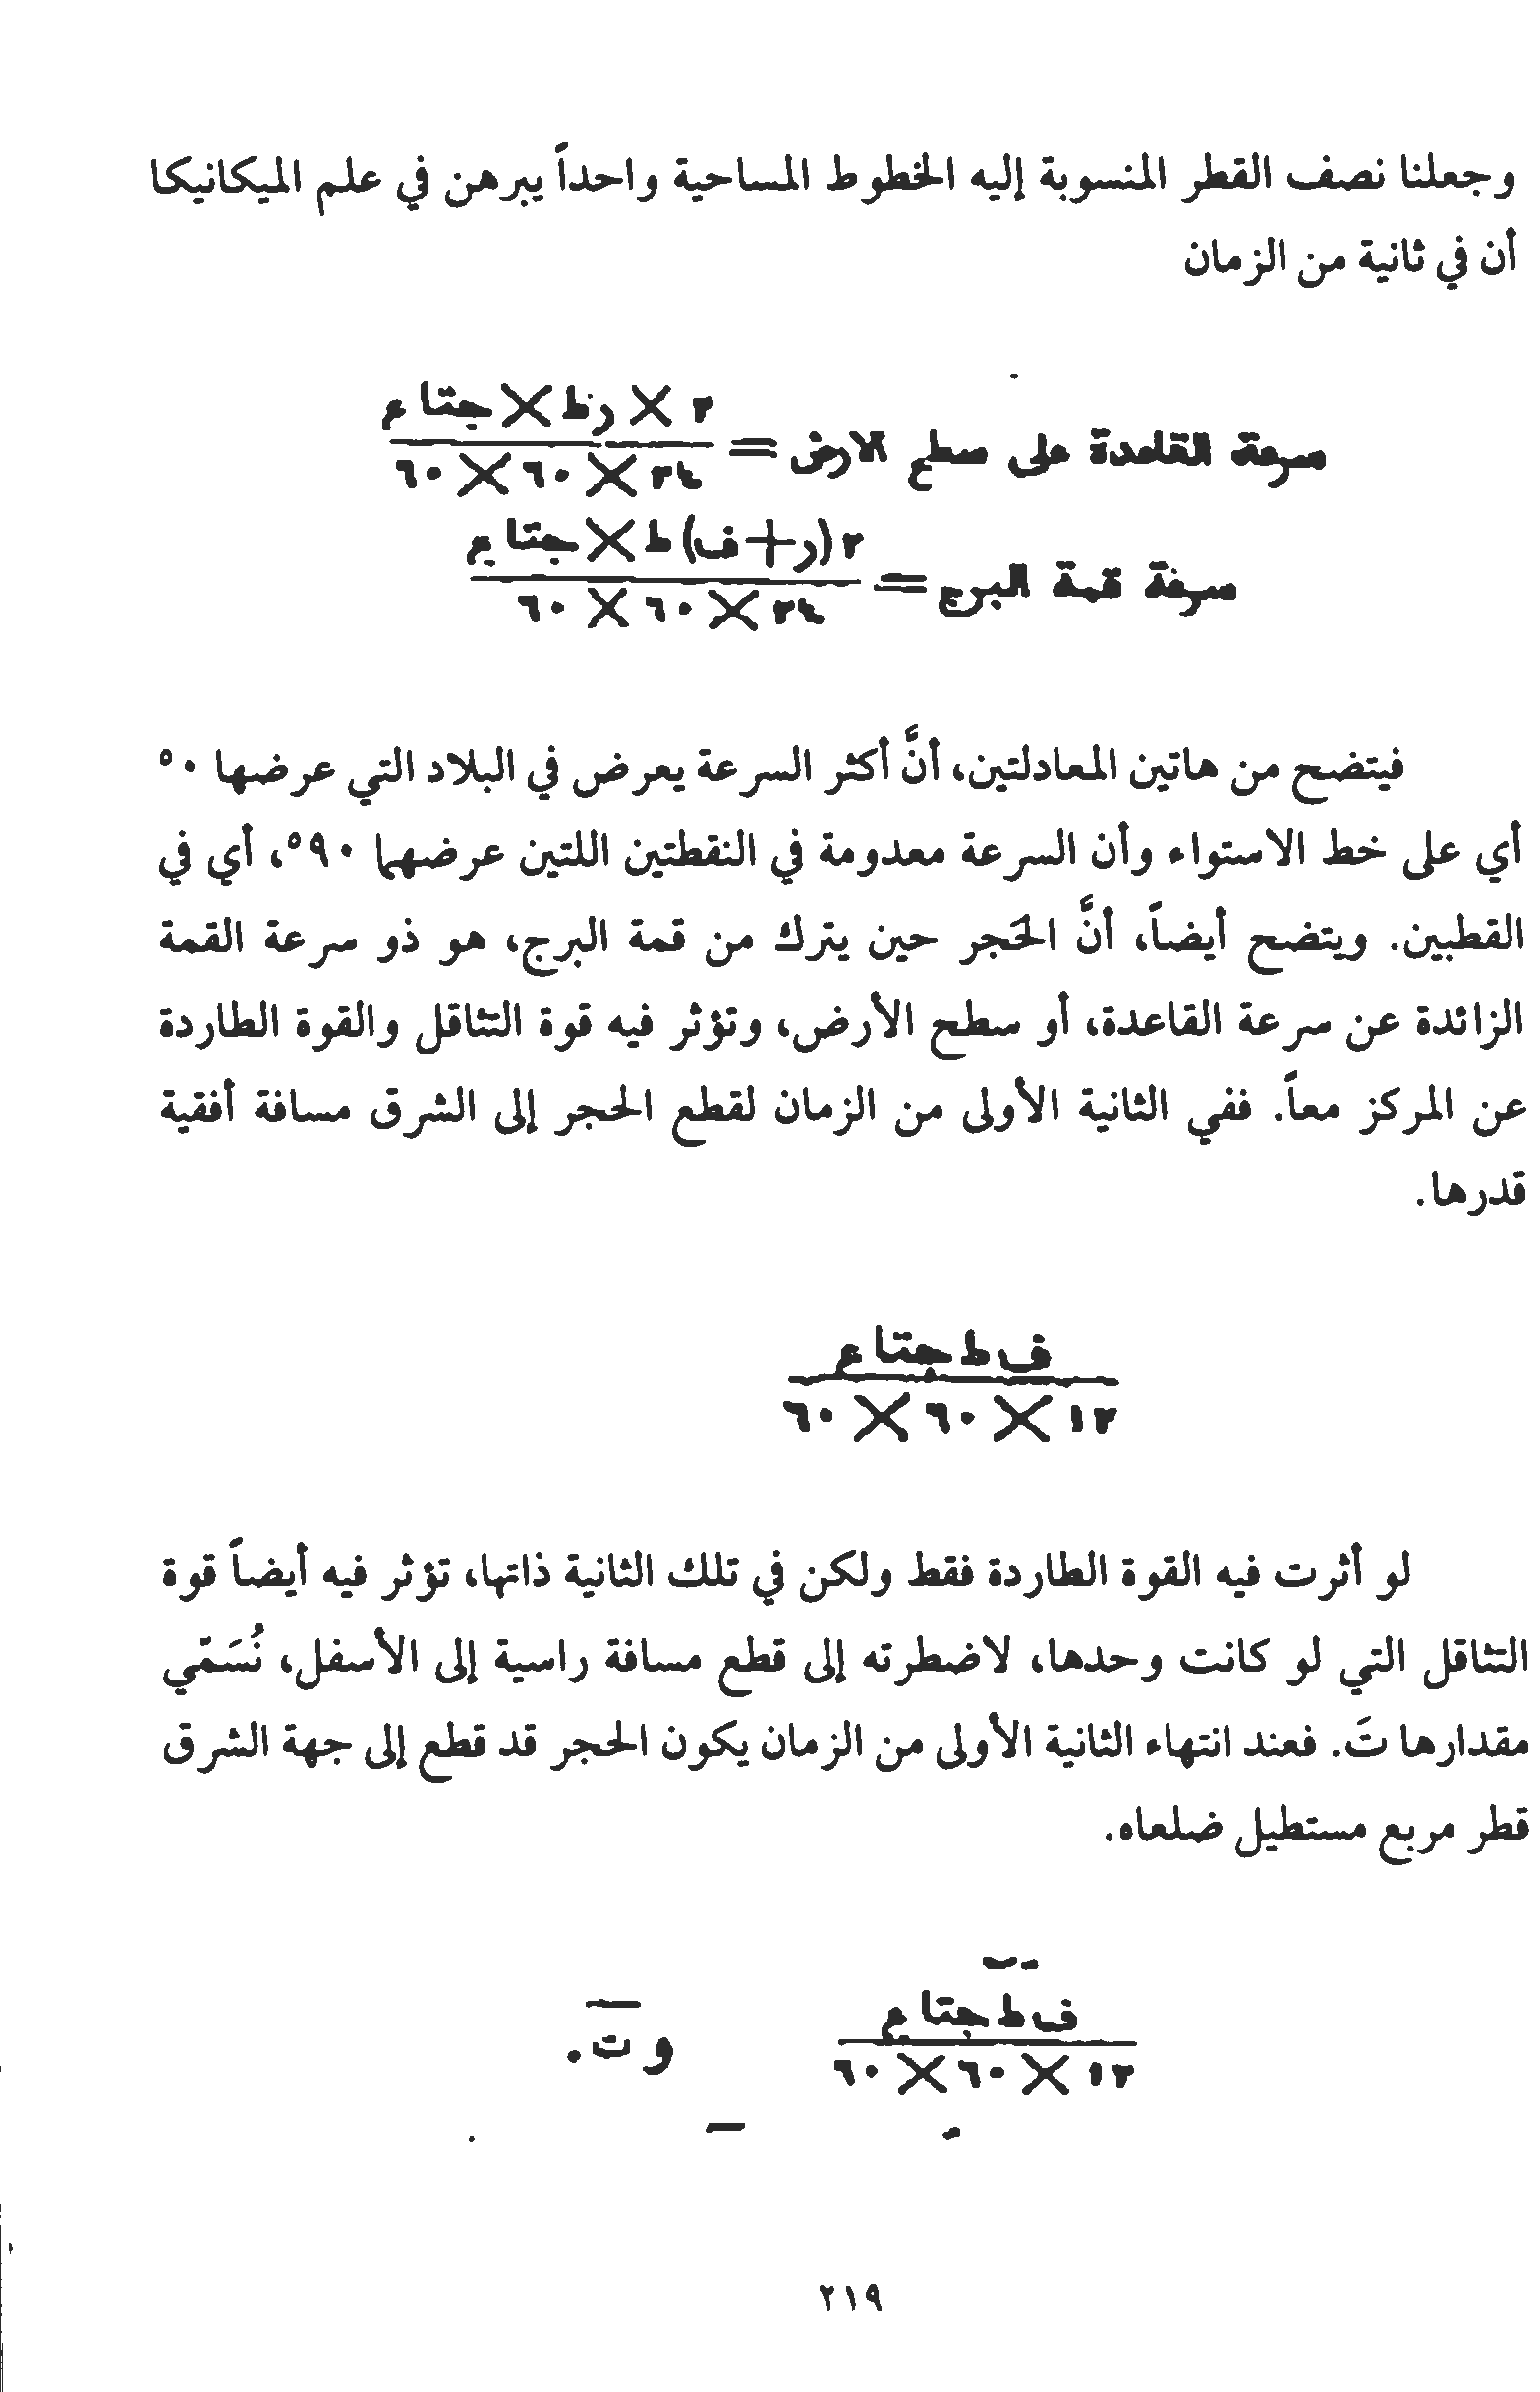 وجعلنا نصف القطر المنسوبة إليه الخطوط المساحية واحداً يبرهن في علم الميكانيكا
أن في ثانية من الزمان
٢ × رط × جتا ع
سرعة القاعدة على سطح الارض =
٢٤ × ٦٠ × ٦٠
٢(ر + ف) ط × جتا ع
سرعة قمة البرج =
٢٤ × ٦٠ × ٦٠
فيتضح من هاتين المعادلتين، أنَّ أكثر السرعة يعرض في البلاد التي عرضها ٠°
أي على خط الاستواء وأن السرعة معدومة في النقطتين اللتين عرضهما ٩٠°، أي في
القطبين. ويتضح أيضاً، أنَّ الحَجر حين يترك من قمة البرج، هو ذو سرعة القمة
الزائدة عن سرعة القاعدة، أو سطح الأرض، وتؤثر فيه قوة التثاقل والقوة الطاردة
عن المركز معاً. ففي الثانية الأولى من الزمان لقطع الحجر إلى الشرق مسافة أفقية
قدرها.
ف ط جتا ع
١٢ × ٦٠ × ٦٠
لو أثرت فيه القوة الطاردة فقط ولكن في تلك الثانية ذاتها، تؤثر فيه أيضاً قوة
التثاقل التي لو كانت وحدها، لاضطرته إلى قطع مسافة راسية إلى الأسفل، نُسَمّي
مقدارها تَ. فعند انتهاء الثانية الأولى من الزمان يكون الحجر قد قطع إلى جهة الشرق
قطر مربع مستطيل ضلعاه.
ف ط جتا ع
و ت.
١٢ × ٦٠ × ٦٠
٢١٩